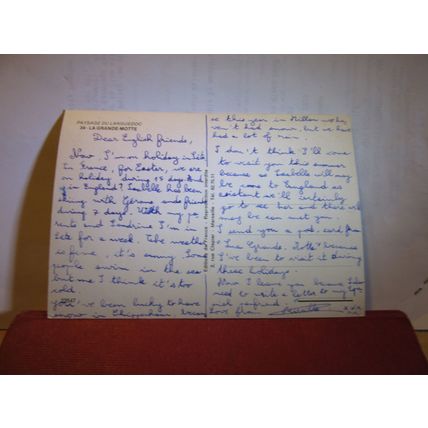 PAYSAGE DU LANGUEDOC
34 - LA GRANDE-MOTTE
Dear English friends,
Now, I'm on holiday in Sète,
in France, for Easter, we are
on holiday during 15 days. And
in England? Isabelle has been
skiing with Gérome and friends
during 7 days. With my pa
rents and Sandrine I'm in
Sète for a week. The weather
is fine, it's sunny. Some
people swim in the sea
but me I think it's too
cold.
you've been lucky to have
snow in Chippenham because
se this year in Millau we ha
ven't had snow, but we have
had a lot of rain.
I don't think I'll come
to visit you this summer
because as Isabelle will may
be come to England as
assistant we'll certainly
go to see her and then
may be can meet you.
I send you a post card from
"La Grande Motte" because
I've been to visit it during
these holidays.
Now I leave you because I
need to write a letter to my
penfriend.
Love from
Editions de France